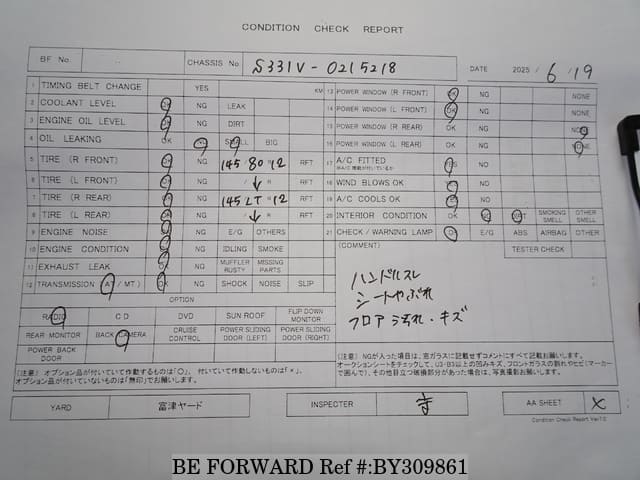 CONDITION CHECK REPORT
BF No. CHASSIS No S331V-0215218 DATE 2025 / 6 / 19
1 TIMING BELT CHANGE YES KM
2 COOLANT LEVEL OK NG LEAK
3 ENGINE OIL LEVEL OK NG DIRT
4 OIL LEAKING OK NG SMALL BIG
5 TIRE (R FRONT) OK NG 145/80R12 RFT
6 TIRE (L FRONT) OK NG / ↓ R RFT
7 TIRE (R REAR) OK NG 145 LT R12 RFT
8 TIRE (L REAR) OK NG / ↓ R RFT
9 ENGINE NOISE OK NG E/G OTHERS
10 ENGINE CONDITION OK NG IDLING SMOKE
11 EXHAUST LEAK OK NG MUFFLER RUSTY MISSING PARTS
12 TRANSMISSION (AT / MT) OK NG SHOCK NOISE SLIP
OPTION
RADIO CD DVD SUN ROOF FLIP DOWN MONITOR
REAR MONITOR BACK CAMERA CRUISE CONTROL POWER SLIDING DOOR (LEFT) POWER SLIDING DOOR (RIGHT)
POWER BACK DOOR
(注意) オプション品が付いていて作動するものは「○」、付いていて作動しないものは「×」、
オプション品が付いていないものは「無印」でお願いします。
13 POWER WINDOW (R FRONT) OK NG NONE
14 POWER WINDOW (L FRONT) OK NG NONE
15 POWER WINDOW (R REAR) OK NG NONE
16 POWER WINDOW (L REAR) OK NG NONE
17 A/C FITTED YES NO
18 WIND BLOWS OK YES NO
19 A/C COOLS OK YES NO
20 INTERIOR CONDITION OK NG DIRT SMOKING SMELL OTHER SMELL
21 CHECK / WARNING LAMP OK E/G ABS AIRBAG OTHER
(COMMENT) TESTER CHECK
ハンドルスレ
シートやぶれ
フロア汚れ・キズ
(注意) NGが入った項目は、窓ガラスに記載せずコメントにすべて記載お願いします。
オークションシートをチェックして、U3・B3以上の凹みキズ、フロントガラスの割れやヒビ(マーカー
で囲んで)、その他目立つ破損部分があった場合は、写真撮影お願いします。
YARD 富津ヤード INSPECTER AA SHEET ×
Condition Check Report Ver7.0
BE FORWARD Ref #:BY309861